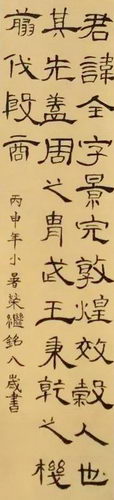 君諱全字景完敦煌效穀人也
其先蓋周之胄武王秉乾之機
翦伐殷商
丙申年小暑榮繼銘八歲書